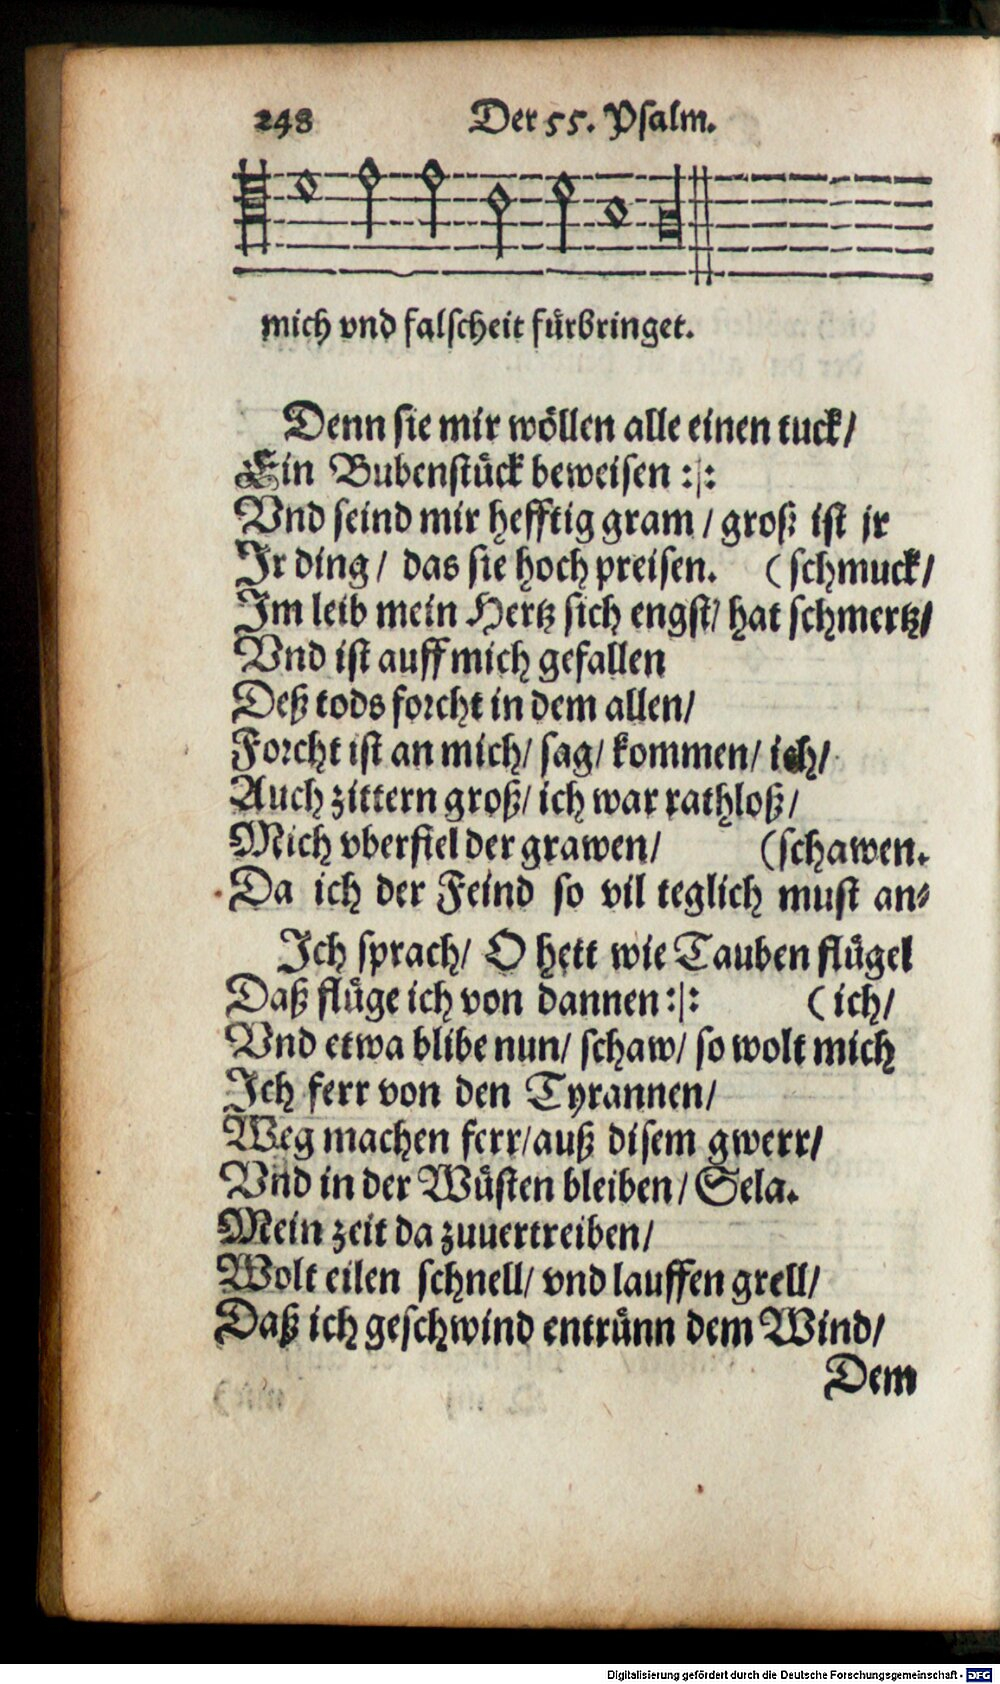 248 Der 55. Psalm.
mich vnd falscheit fürbringet.
Denn sie mir wöllen alle einen tuck/
Ein Bubenstück beweisen :|:
Vnd seind mir hefftig gram / groß ist jr
Jr ding / das sie hoch preisen. (schmuck/
Im leib mein Hertz sich engst/ hat schmertz/
Vnd ist auff mich gefallen
Deß tods forcht in dem allen/
Forcht ist an mich/ sag/ kommen/ ich/
Auch zittern groß/ ich war rathloß/
Mich vberfiel der grawen/ (schawen.
Da ich der Feind so vil teglich must an-
Ich sprach/ O hett wie Tauben flügel
Daß flüge ich von dannen :|: (ich/
Vnd etwa blibe nun/ schaw/ so wolt mich
Ich ferr von den Tyrannen/
Weg machen ferr/ auß disem gwerr/
Vnd in der Wüsten bleiben/ Sela.
Mein zeit da zuuertreiben/
Wolt eilen schnell/ vnd lauffen grell/
Daß ich geschwind entrünn dem Wind/
Dem
Digitalisierung gefördert durch die Deutsche Forschungsgemeinschaft - DFG